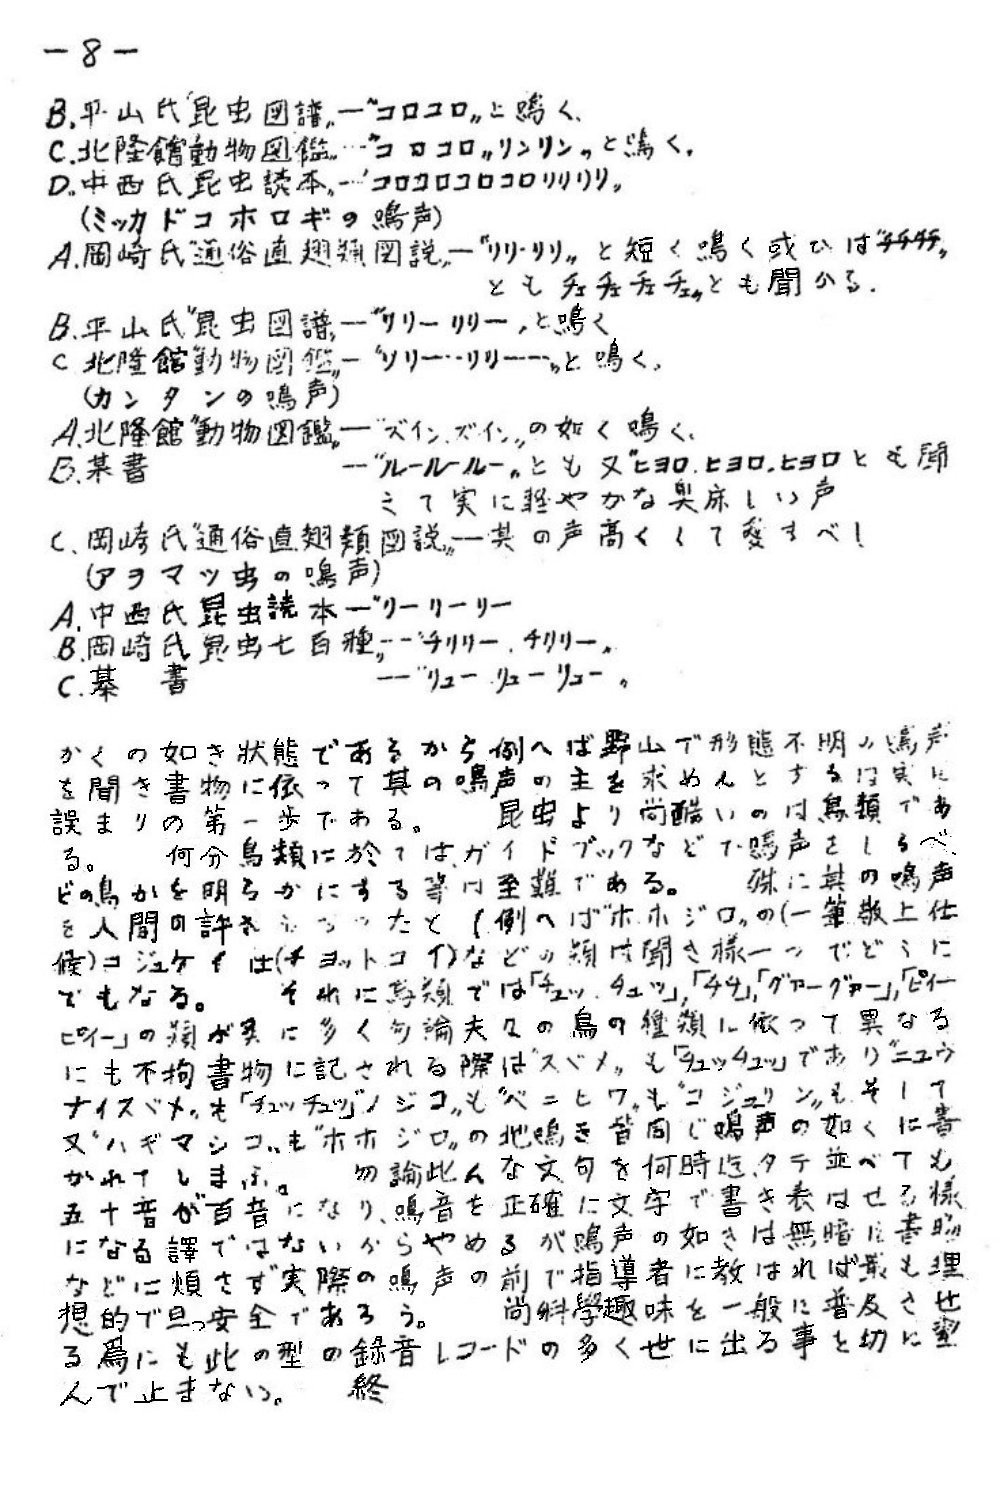 －8－
B.平山氏"昆虫図譜〃―"コロコロ〃と鳴く.
C.北隆館動物図鑑〃…"コロコロ〃リンリン〃と鳴く.
D.中西氏昆虫読本.―'コロコロコロコロリリリリ〃
(ミツカドコホロギの鳴声)
A.岡崎氏"通俗直翅類図説〃―"リリ・リリ〃と短く鳴く或ひは"チチチチ〃
ともチェチェチェチェ〃とも聞かる.
B.平山氏"昆虫図譜〃―"リリーリリー〃と鳴く
C.北隆館"動物図鑑〃―"リリー・・リリー――〃と鳴く.
(カンタンの鳴声)
A.北隆館"動物図鑑〃―"ズイン.ズイン〃の如く鳴く.
B.某書 ―"ルールールー〃とも又"ヒヨロ.ヒヨロ.ヒヨロとも聞
えて実に軽やかな奥床しい声
C.岡崎氏"通俗直翅類図説〃―其の声高くして愛すべし
(アヲマツ虫の鳴声)
A.中西氏昆虫読本―"リーリーリー
B.岡崎氏昆虫七百種〃―"チリリー.チリリー〃
C.某書 ―"リューリューリュー〃
かくの如き状態であるから例へば野山で形態不明の鳴声
を聞き書物に依って其の鳴声の主を求めんとするは実に
誤まりの第一歩である。 昆虫より尚酷いのは鳥類であ
る。 何分鳥類に於ては、ガイドブックなどで鳴声をしらべ、
どの鳥かを明らかにする等は至難である。 殊に其の鳴声
を人間の許き ったと(例へば"ホホジロ〃の(一筆啓上仕
候)コジュケイは(チョットコイ)などの類は聞き様一つでどうに
でもなる。 それに鳥類では「チュッ.チュッ」,「チチ」,「グァーグァー」,「ピィー
ピィー」の類が実に多く勿論夫々の鳥の種類に依って異なる
にも不拘書物に記される際は"スズメ〃も「チュッチュッ」であり"ニュウ
ナイスズメ〃も「チュッチュッ」"ノジコ〃も"ベニヒワ〃も"コジュリン〃もそして
又"ハギマシコ〃も"ホホジロ〃の地鳴き皆同じ鳴声の如くに書
かれてしまふ。 勿論此んな文句を何時迄.タテ並べても
五十音が百音になり、鳴音を正確に文字で書き表はせる様
になる譯ではないからやめるが鳴声の如きは無暗に書物
などに煩さず実際の鳴声の前で指導者に教はれば最も理
想的で且つ安全であろう。 尚科學趣味を一般に普及させ
る爲にも此の型の録音レコードの多く世に出る事を切に望
んで止まない。 終